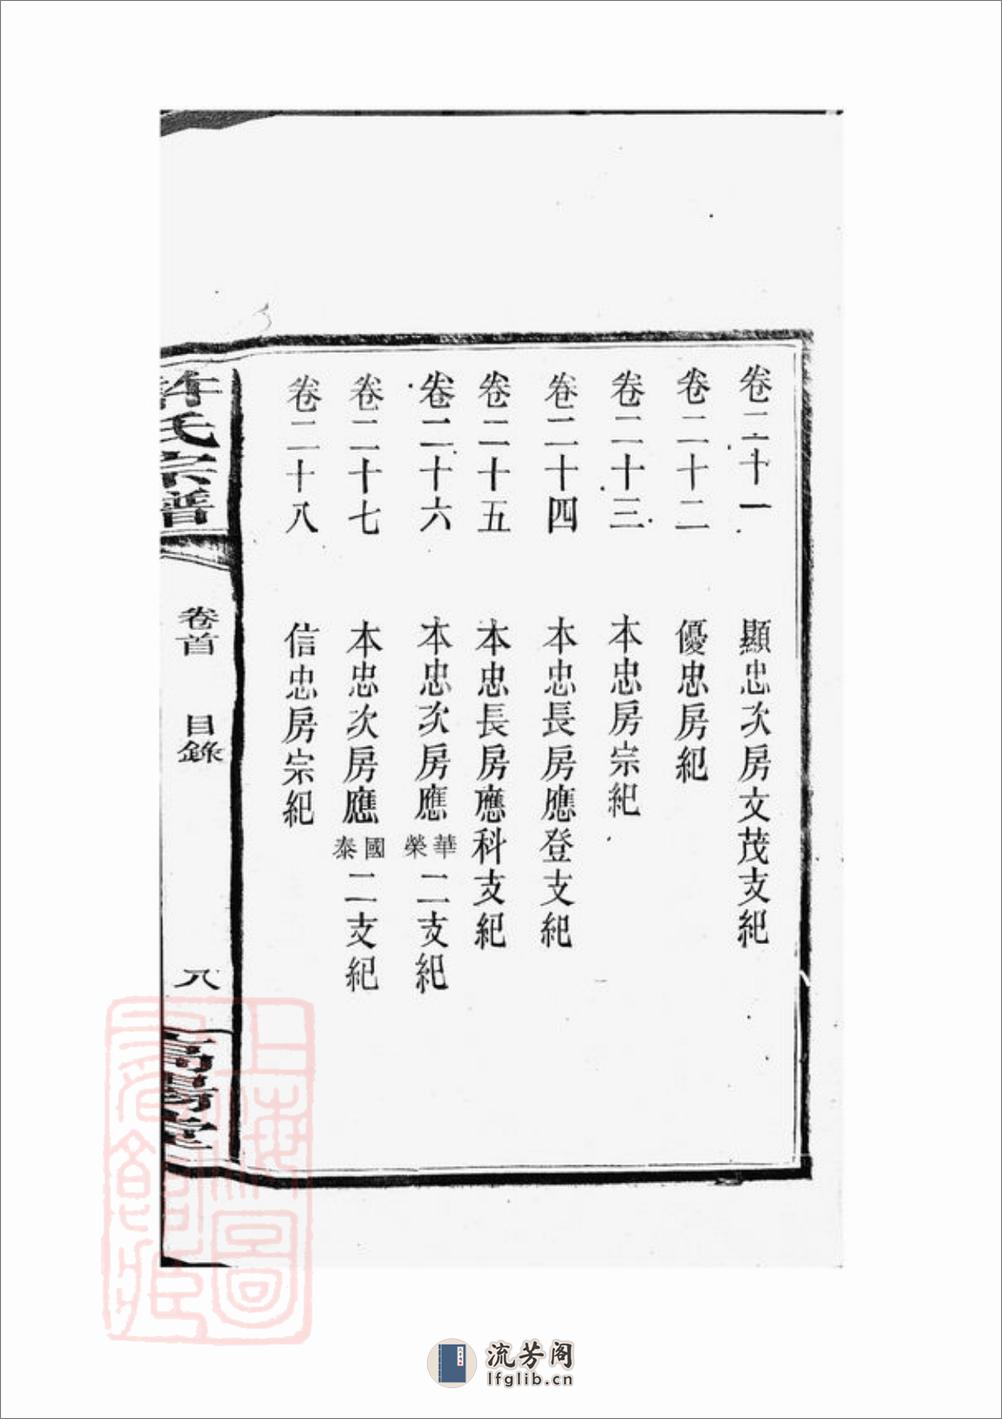 卷二十一　顯忠次房文茂支紀
卷二十二　優忠房紀
卷二十三　本忠房宗紀
卷二十四　本忠長房應登支紀
卷二十五　本忠長房應科支紀
卷二十六　本忠次房應華榮二支紀
卷二十七　本忠次房應國泰二支紀
卷二十八　信忠房宗紀
許氏宗譜　卷首　目錄　八　高陽堂
上海圖書館藏
流芳阁
lfglib.cn